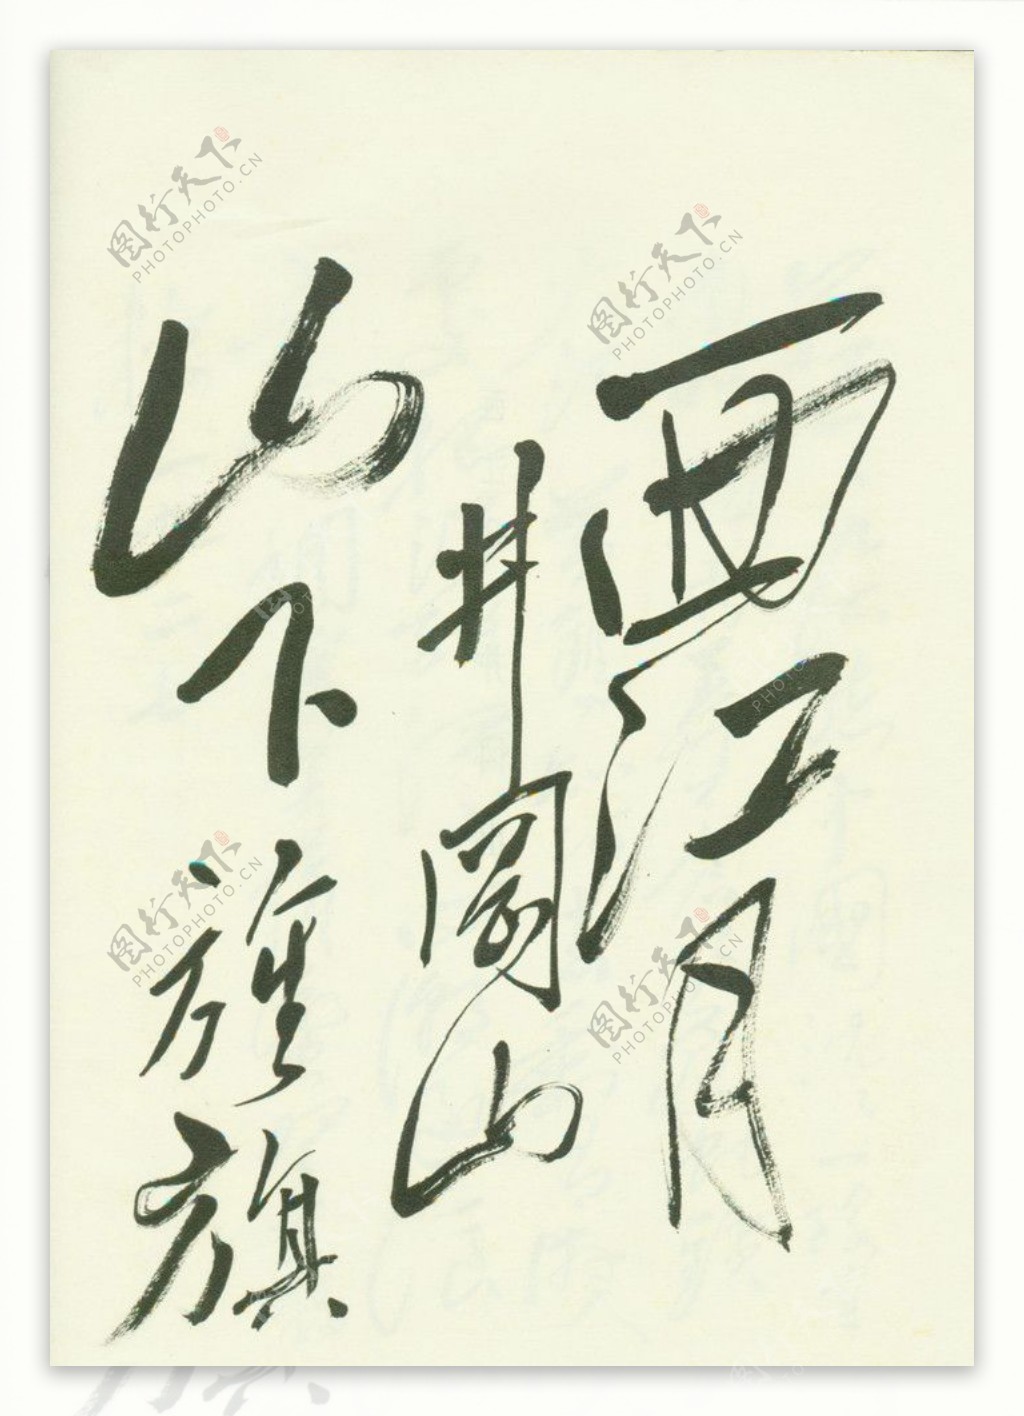 西江月
井冈山
山下旌旗
图行天下
PHOTOPHOTO.CN
图行天下
PHOTOPHOTO.CN
图行天下
PHOTOPHOTO.CN
图行天下
PHOTOPHOTO.CN